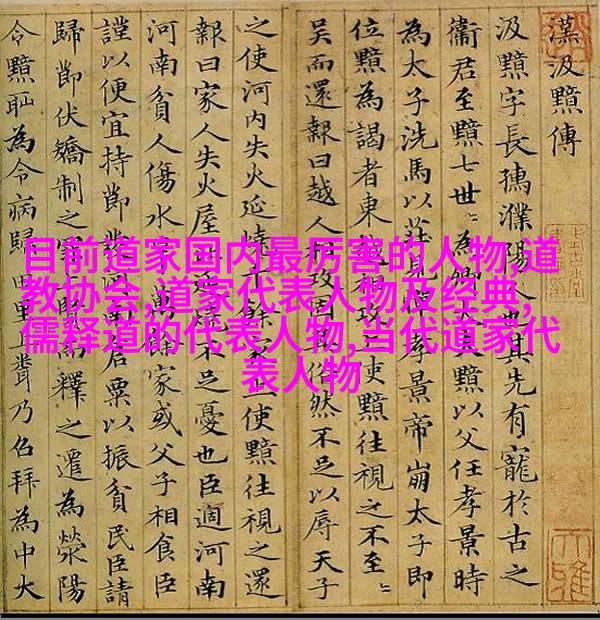 目前道家国内最厉害的人物,道
教协会,道家代表人物及经典,
儒释道的代表人物,当代道家代
表人物
漢汲黯傳
汲黯字長孺濮陽人也其先有寵於古之
衛君至黯七世〻為卿大夫黯以父任孝景時
為太子洗馬以莊見憚孝景帝崩太子即
位黯為謁者東越相攻上使黯往視之不至〻
吳而還報曰越人相攻固其俗然不足以辱天子
之使河內失火延燒千餘家上使黯往視之還
報曰家人失火屋比延燒不足憂也臣適河南
河南貧人傷水旱萬餘家或父子相食臣
謹以便宜持節發河南倉粟以振貧民臣請
歸節伏矯制之罪上賢而釋之遷為滎陽
令黯恥為令病歸田里上乃召拜為中大